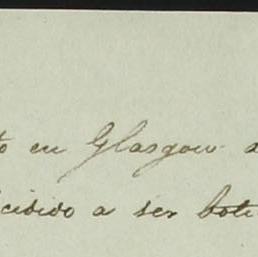 to en Glasgow
cidido a ser bote